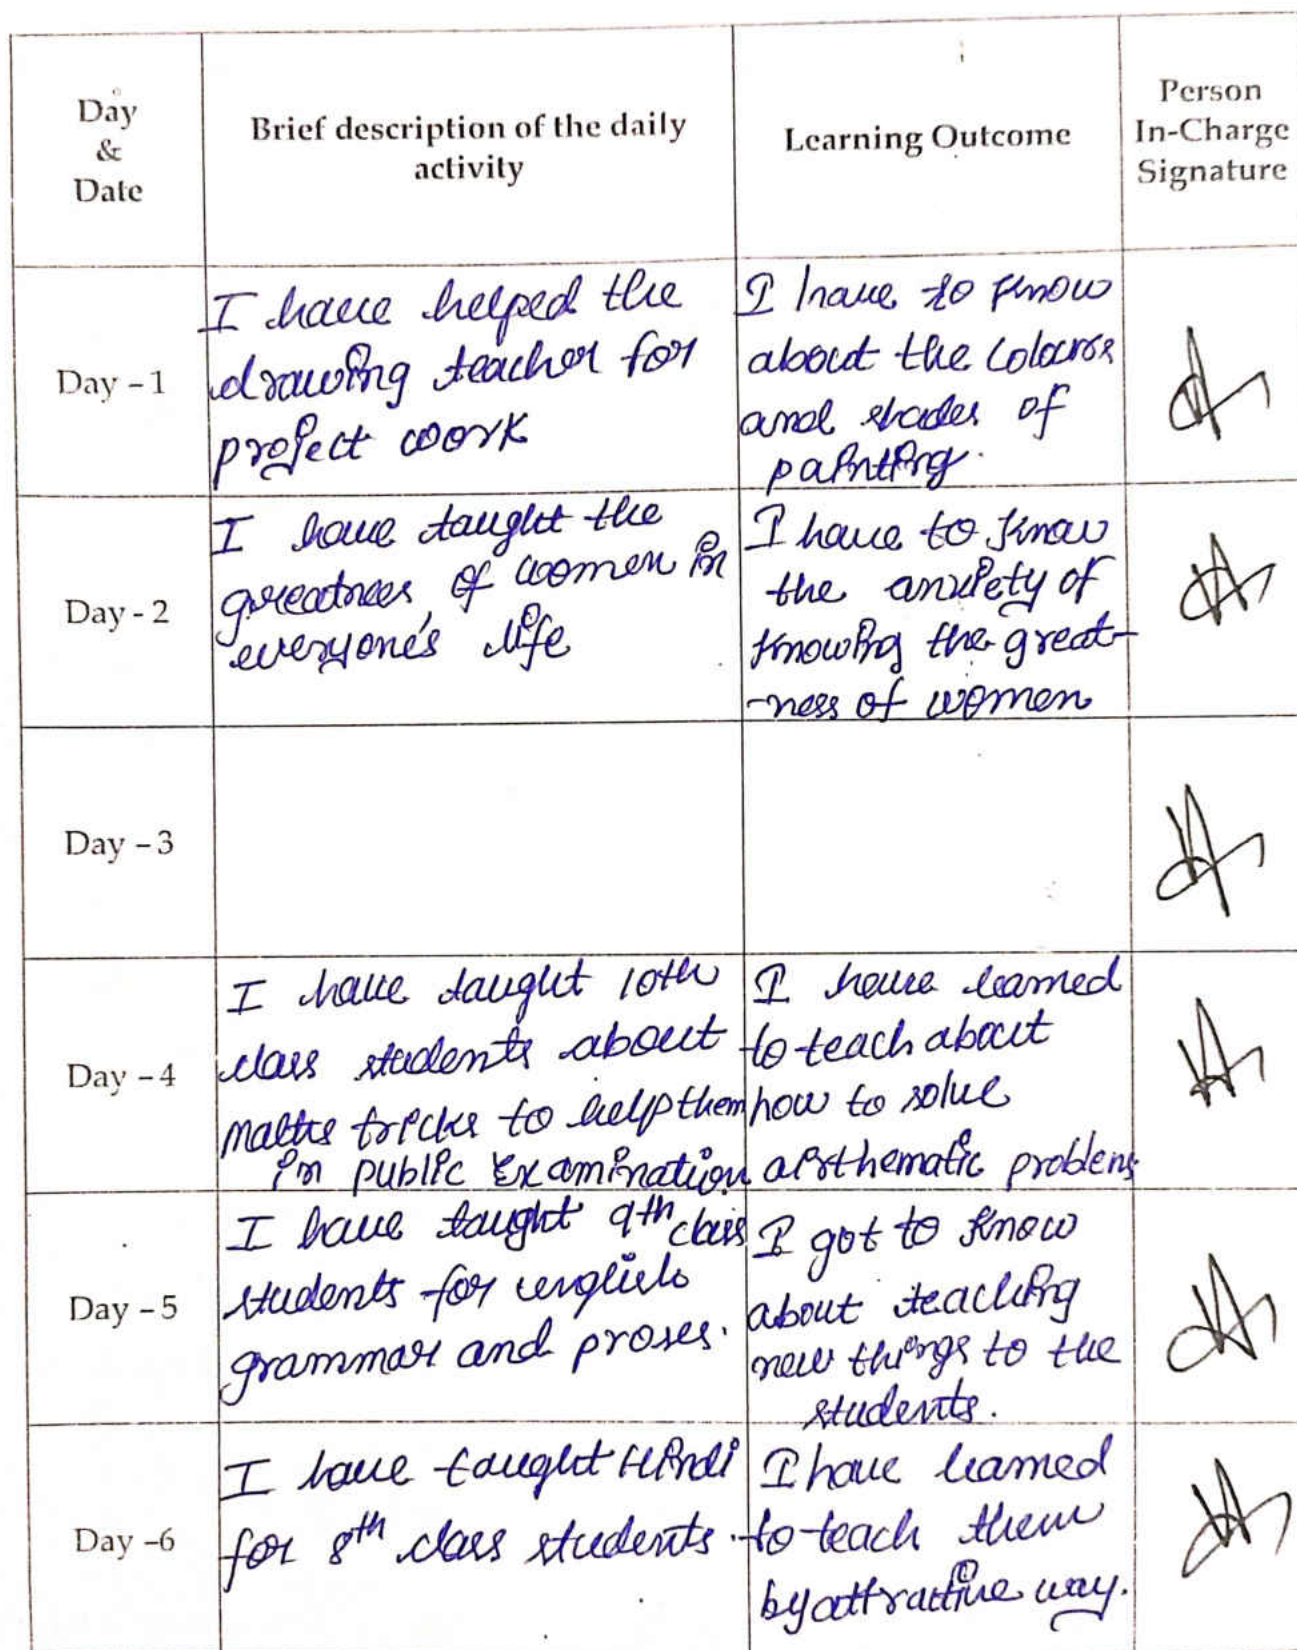 Day
&
Date
Brief description of the daily
activity
Learning Outcome
Person
In-Charge
Signature
Day - 1
I have helped the
drawing teacher for
project work
I have to know
about the colours
and shades of
painting.
Day - 2
I have taught the
greatness of women in
everyone's life
I have to know
the anxiety of
knowing the great-
-ness of women
Day - 3
Day - 4
I have taught 10th
class students about
maths tricks to help them
in public Examination
I have learned
to teach about
how to solve
airthematic problems
Day - 5
I have taught 9th class
students for english
grammar and proses.
I got to know
about teaching
new things to the
students.
Day -6
I have taught Hindi
for 8th class students.
I have learned
to teach them
by attractive way.